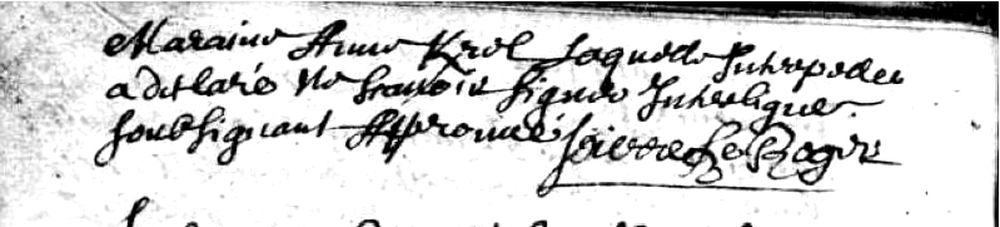 Maraine Anne Krol Laquelle Interpellee
a declaré Ne Scavoir Signer Interligne
Soubsignant Approuvé Pierre Le Roger